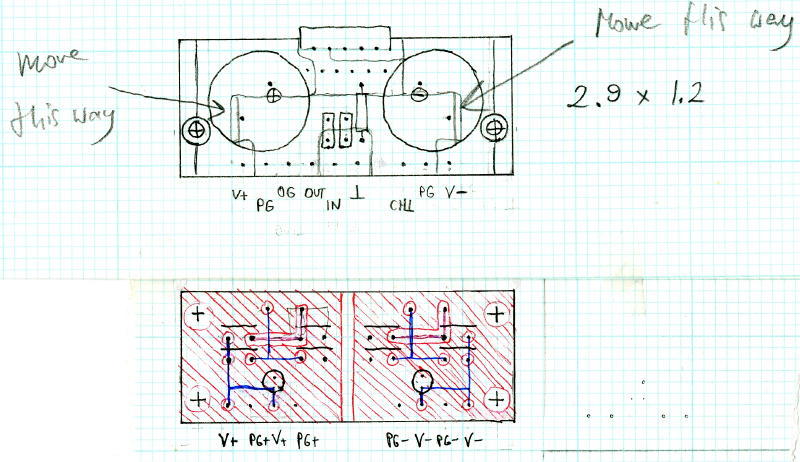 Move this way
2.9 x 1.2
Move
this way
V+ PG OG OUT IN ⊥ CHL PG V-
V+ PG+ V+ PG+ PG- V- PG- V-